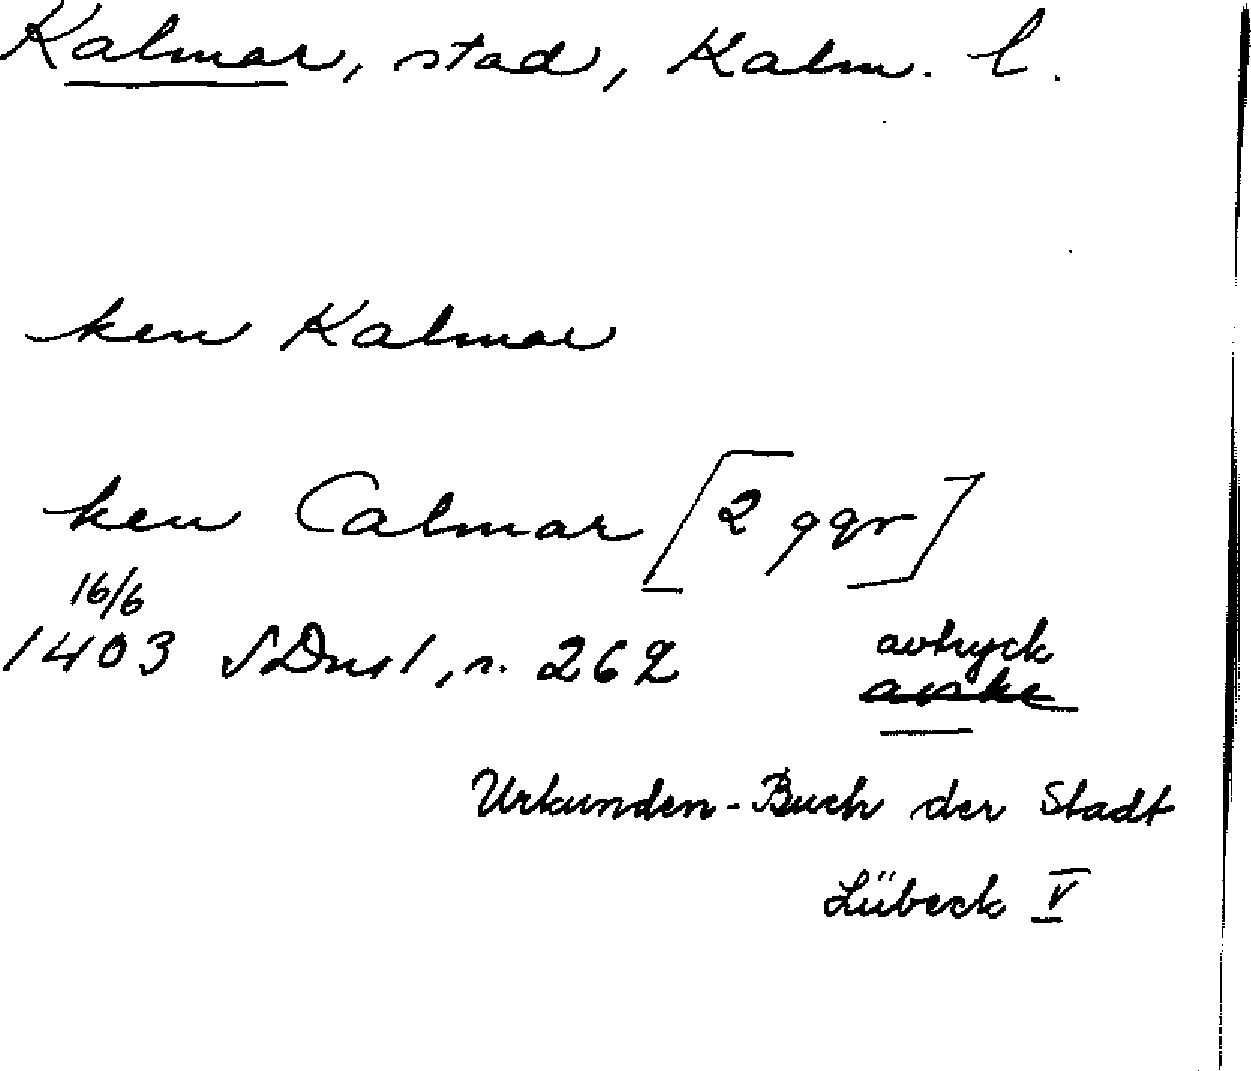 Kalmar, stad, Kalm. l.
ken Kalmar
ken Calmar [2 ggr]
16/6
1403 SDns 1, n. 262
avtryck
avskr
Urkunden-Buch der Stadt
Lübeck V